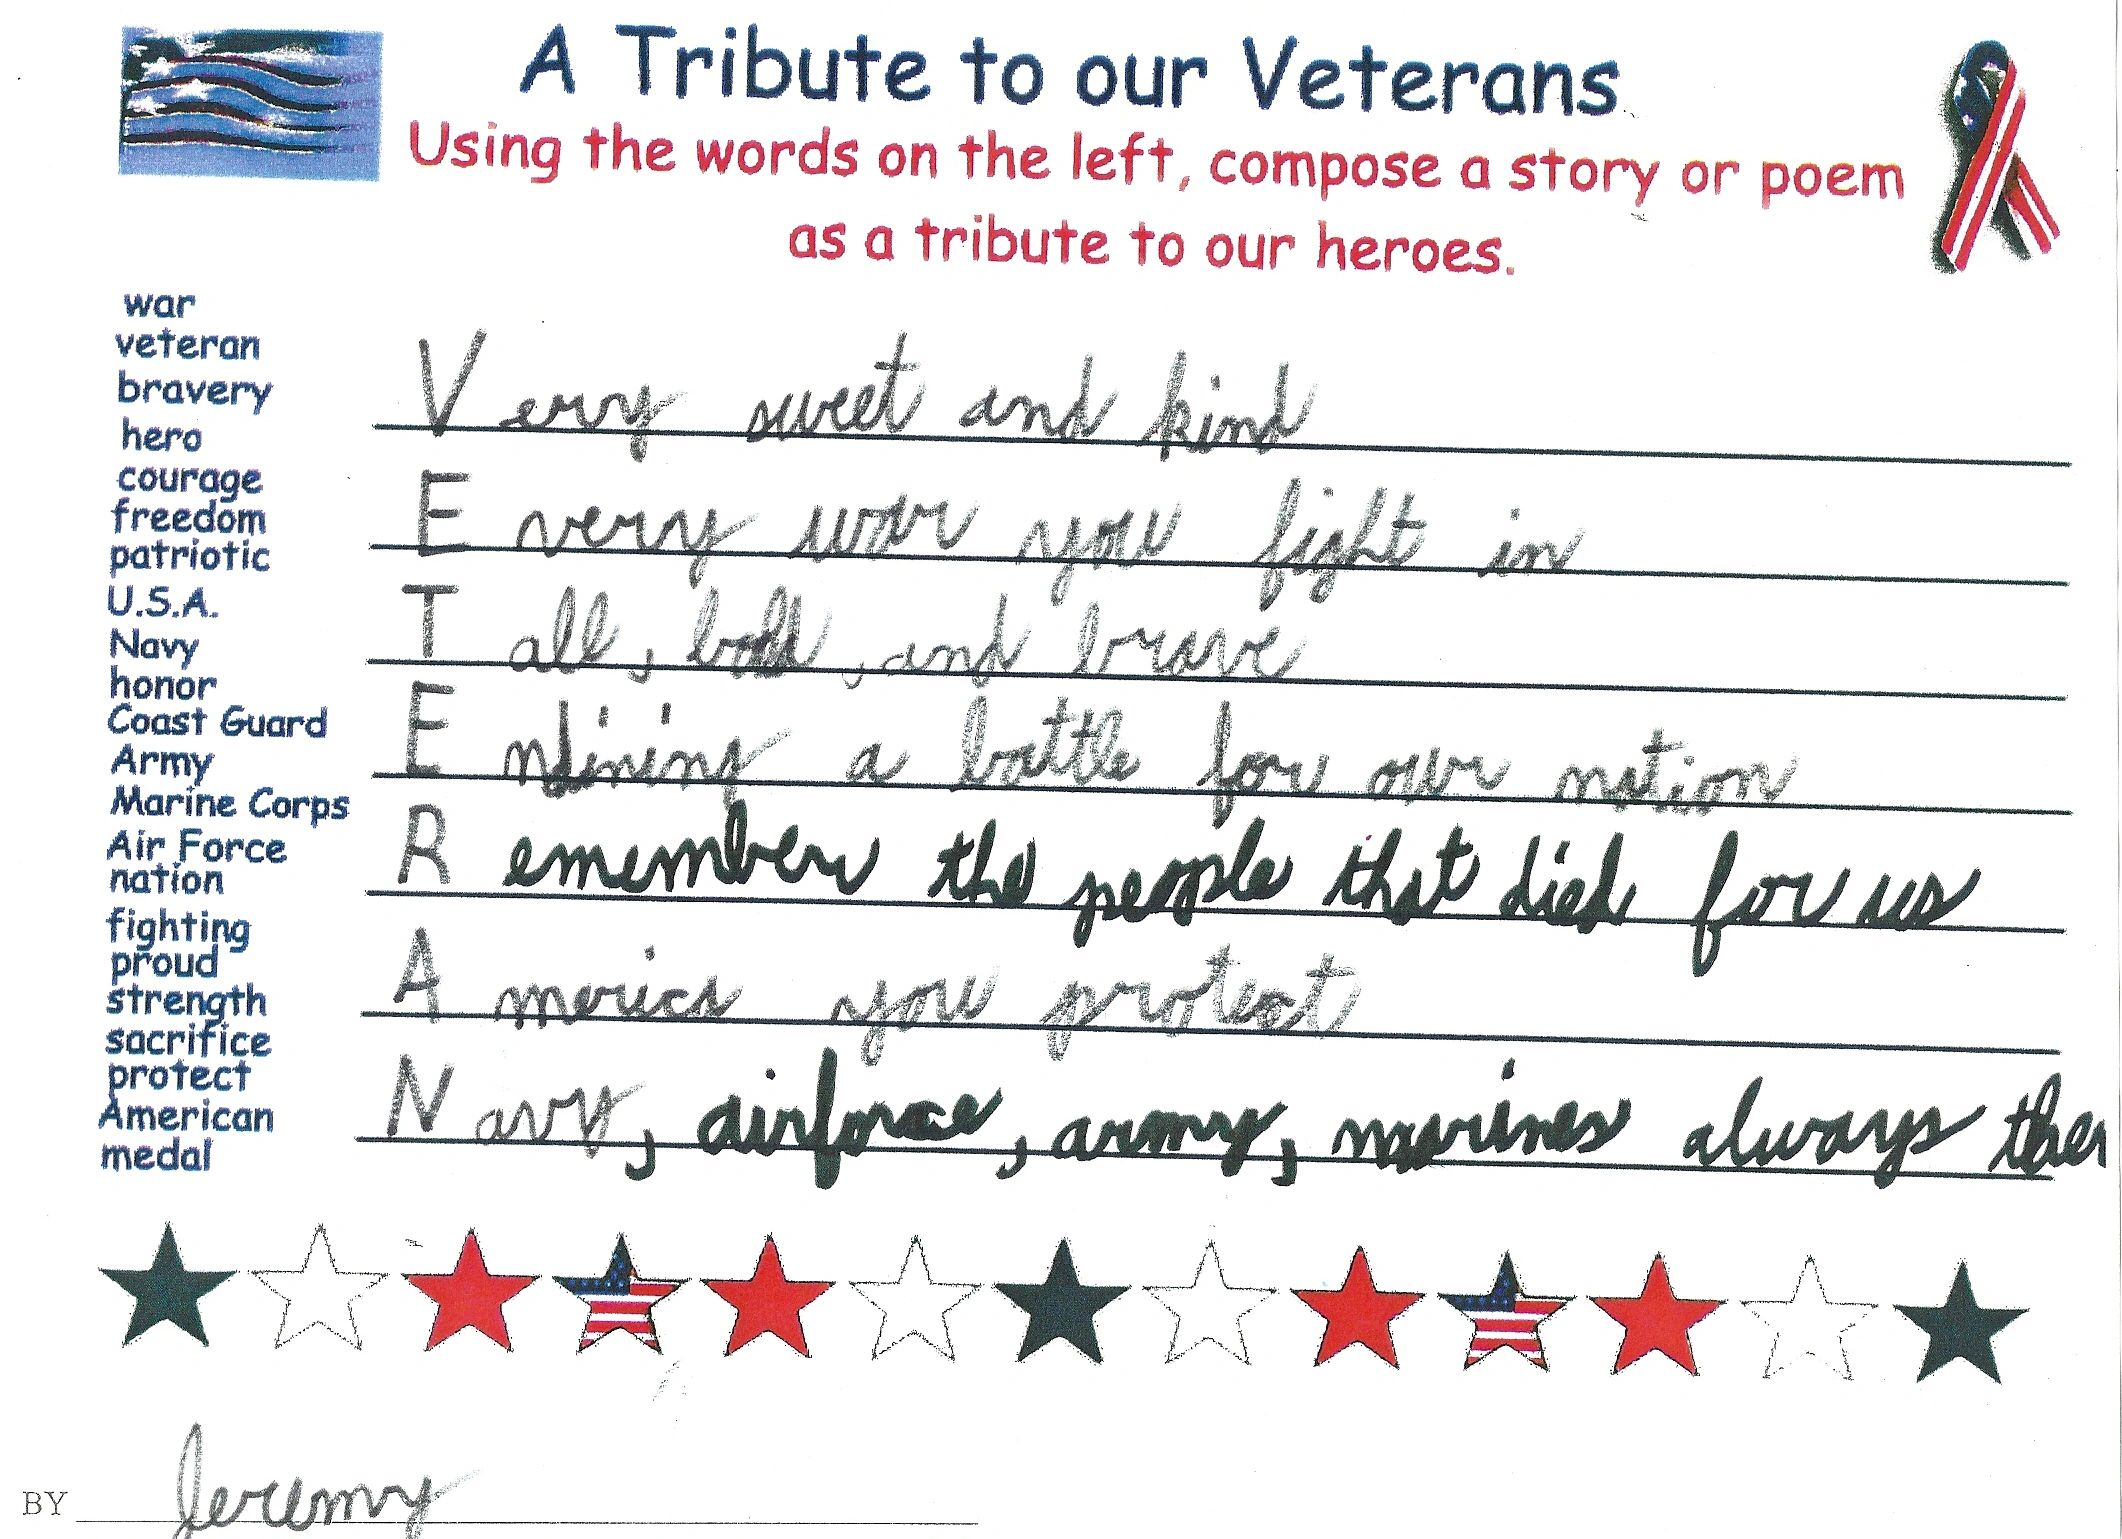 A Tribute to our Veterans
Using the words on the left, compose a story or poem
as a tribute to our heroes.
war
veteran
bravery
hero
courage
freedom
patriotic
U.S.A.
Navy
honor
Coast Guard
Army
Marine Corps
Air Force
nation
fighting
proud
strength
sacrifice
protect
American
medal
Very sweet and kind
Every war you fight in
Tall, bold, and brave
Endining a battle for our nation
Remember the people that died for us
America you protect
Navy, airforce, army, marines always ther
BY Jeremy